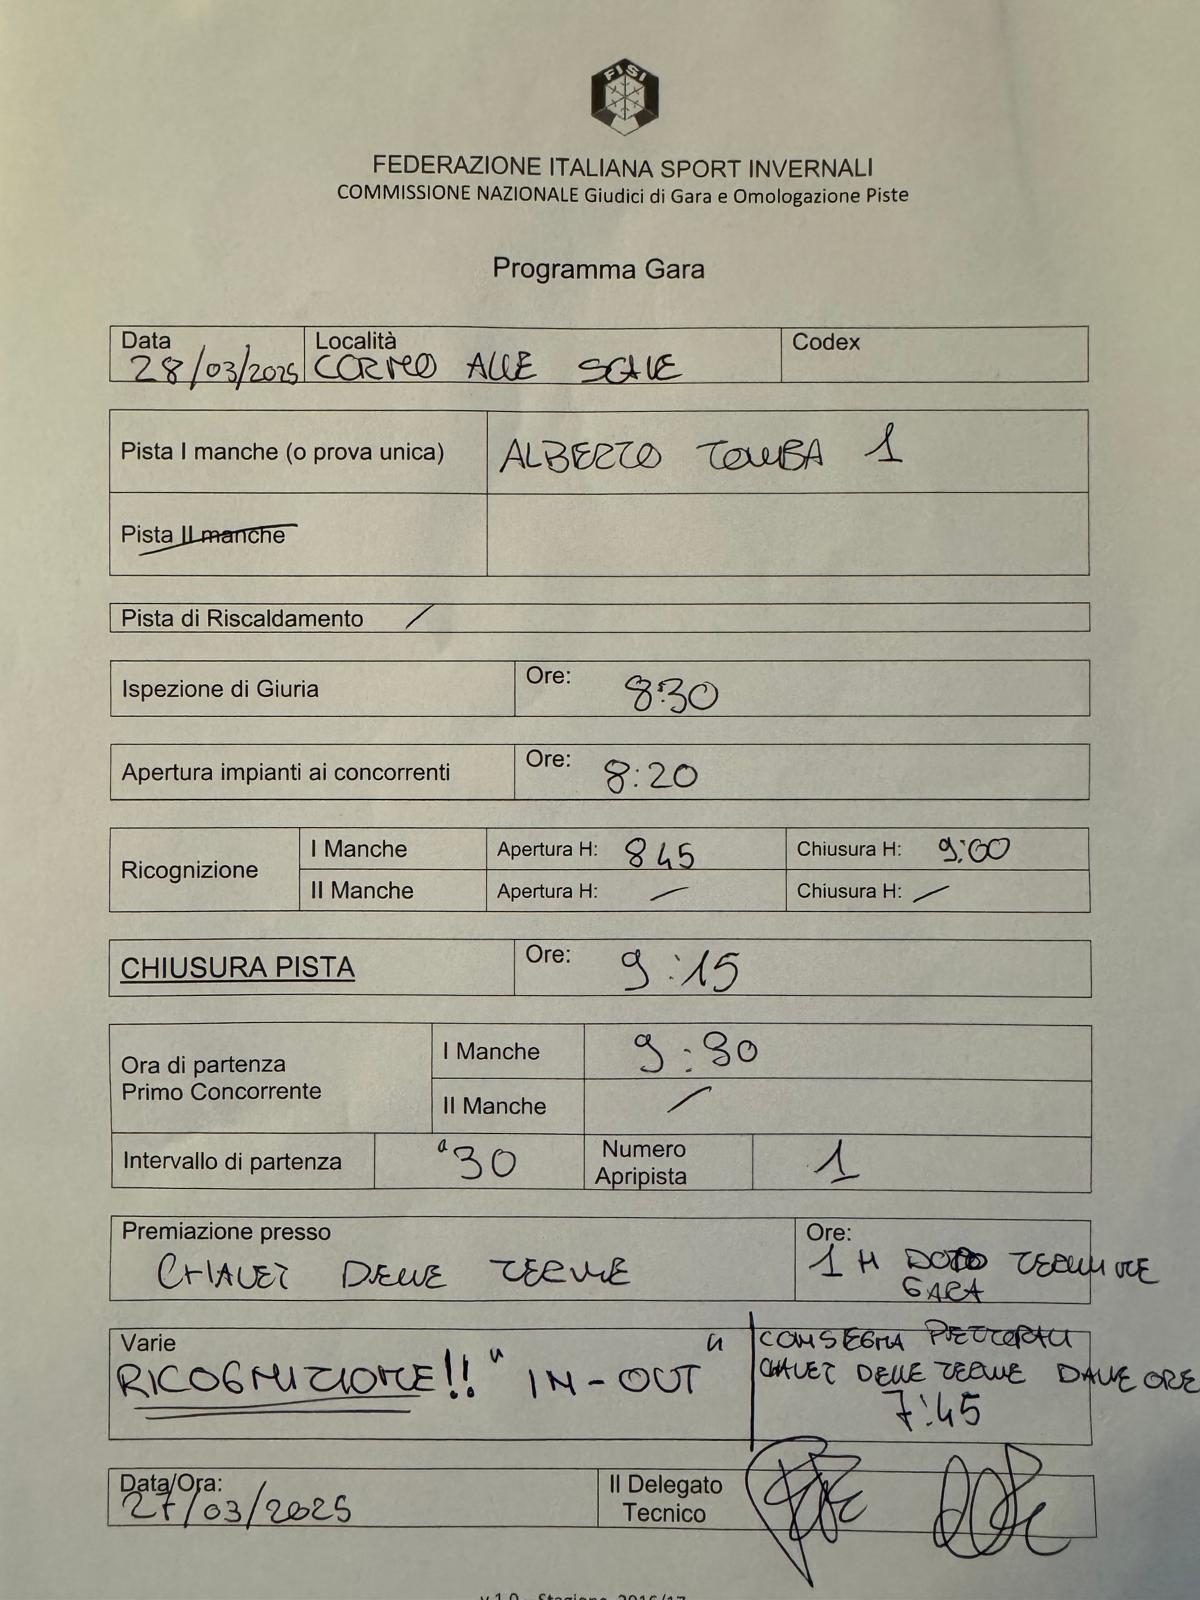 FISI
FEDERAZIONE ITALIANA SPORT INVERNALI
COMMISSIONE NAZIONALE Giudici di Gara e Omologazione Piste
Programma Gara
Data Località Codex
28/03/2025 CORNO ALLE SCALE
Pista I manche (o prova unica) ALBERTO TOMBA 1
Pista II manche
Pista di Riscaldamento /
Ispezione di Giuria Ore: 8:30
Apertura impianti ai concorrenti Ore: 8:20
Ricognizione I Manche Apertura H: 845 Chiusura H: 9:00
II Manche Apertura H: / Chiusura H: /
CHIUSURA PISTA Ore: 9:15
Ora di partenza
Primo Concorrente
I Manche 9:30
II Manche /
Intervallo di partenza "30 Numero
Apripista 1
Premiazione presso Ore:
CHALET DELLE TERME 1 H DOPO TERMINE
GARA
Varie
RICOGNIZIONE!! "IN-OUT"
CONSEGNA PETTORALI
CHALET DELLE TERME DALLE ORE
7:45
Data/Ora:
27/03/2025
Il Delegato
Tecnico
v.1.0 - Stagione 2016/17